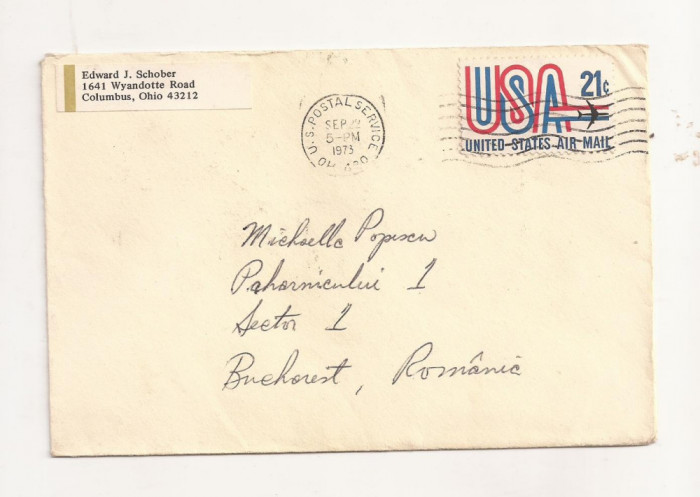 Edward J. Schober
1641 Wyandotte Road
Columbus, Ohio 43212
U.S. POSTAL SERVICE
SEP 22
5-PM
1973
OH 430
USA 21c
UNITED STATES AIR MAIL
Michaella Popescu
Paharnicului 1
Sector 1
Bucharest, România